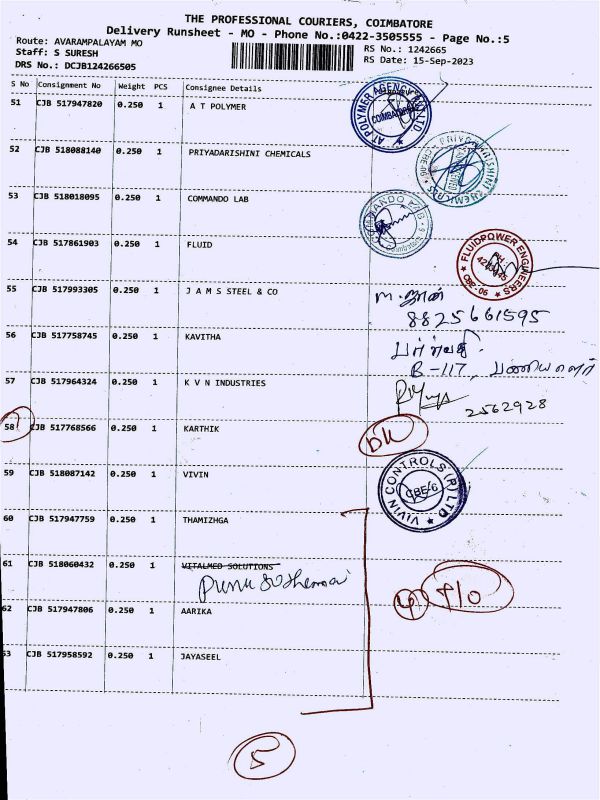 THE PROFESSIONAL COURIERS, COIMBATORE
Delivery Runsheet - MO - Phone No.:0422-3505555 - Page No.:5
Route: AVARAMPALAYAM MO
RS No.: 1242665
Staff: S SURESH
RS Date: 15-Sep-2023
DRS No.: DCJB124266505
S No Consignment No Weight PCS Consignee Details
51 CJB 517947820 0.250 1 A T POLYMER
AT POLYMER AGENCY (P) LTD COIMBATORE
52 CJB 518088140 0.250 1 PRIYADARISHINI CHEMICALS
PRIYADARISHINI CHEMICALS CBE-06
53 CJB 518018095 0.250 1 COMMANDO LAB
COMMANDO
54 CJB 517861903 0.250 1 FLUID
FLUIDPOWER ENGINEERS CBE-06
55 CJB 517993305 0.250 1 J A M S STEEL & CO
8825661595
56 CJB 517758745 0.250 1 KAVITHA
B-117,
57 CJB 517964324 0.250 1 K V N INDUSTRIES
2562928
58 CJB 517768566 0.250 1 KARTHIK
DK
59 CJB 518087142 0.250 1 VIVIN
VIVIN CONTROLS (P) LTD CBE-6
60 CJB 517947759 0.250 1 THAMIZHGA
61 CJB 518060432 0.250 1 VITALMED SOLUTIONS
62 CJB 517947806 0.250 1 AARIKA
63 CJB 517958592 0.250 1 JAYASEEL
5